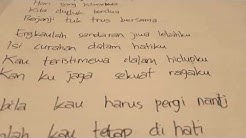 Hari yang
Kita duduk berdua
Berjanji tuk trus bersama
Engkaulah sandaran jiwa lelahku
Isi curahan dalam hatiku
Kau teristimewa dalam hidupku
Kan ku jaga sekuat ragaku
bila kau harus pergi nanti
lah kau tetap di hati